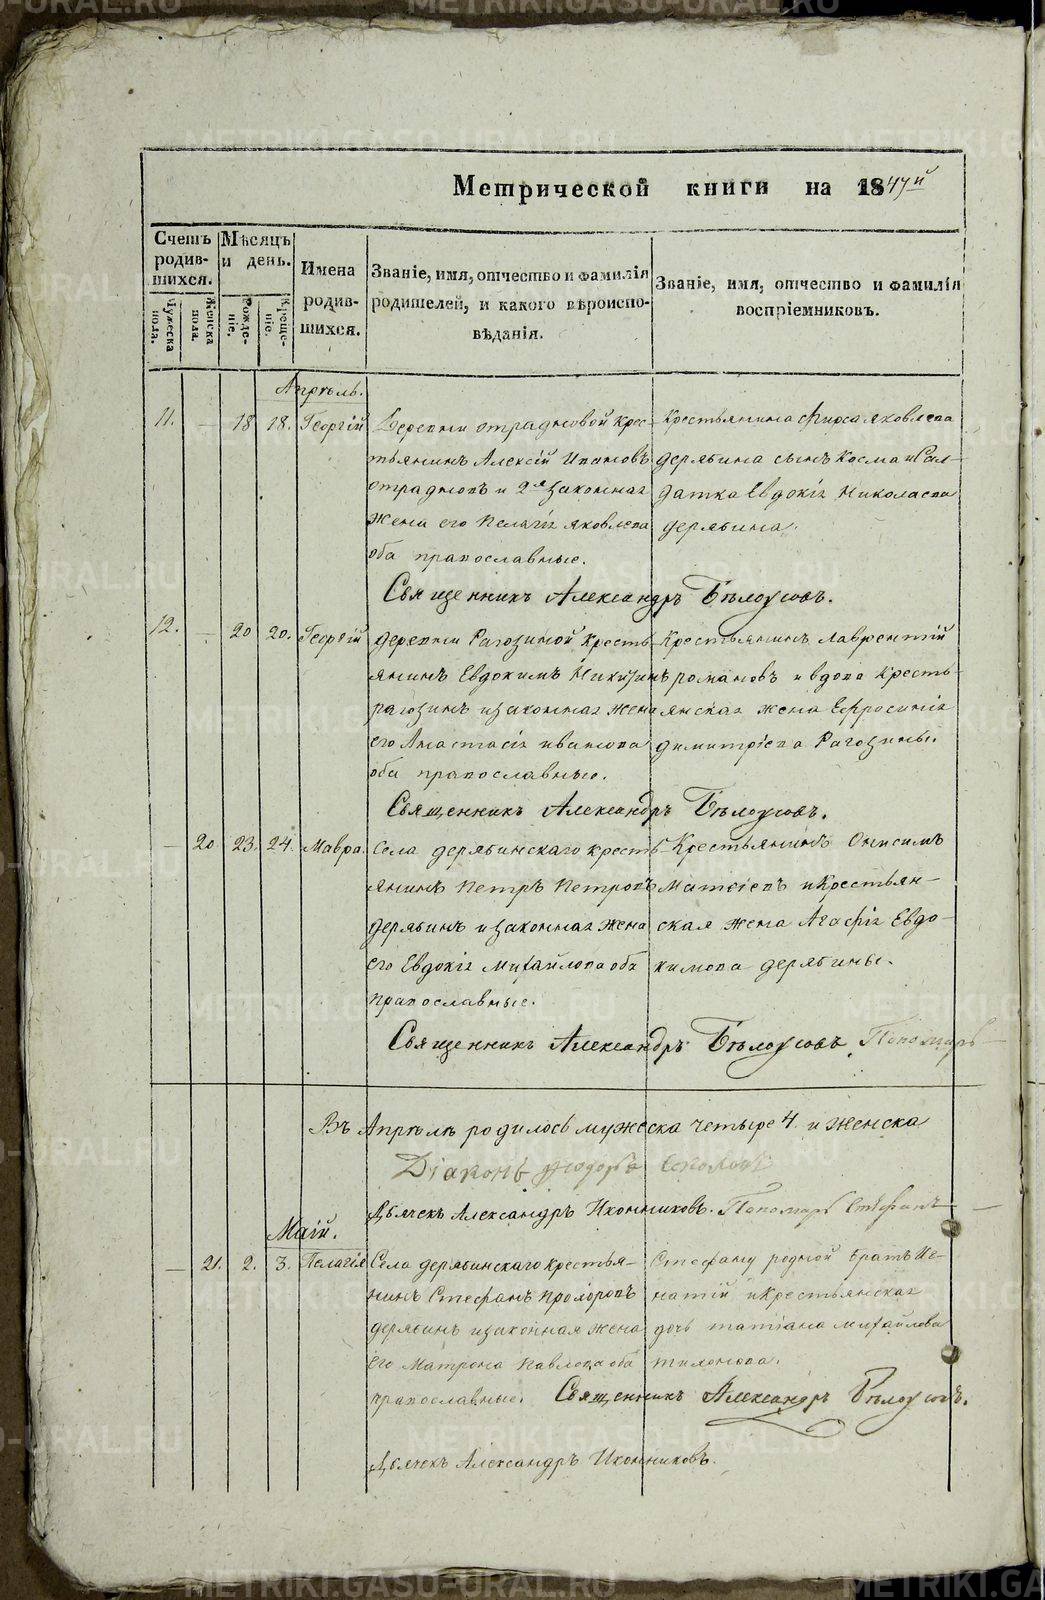 Метрической книги на 1847й
Счетъ родившихся.
Мѣсяцъ и день.
Имена родившихся.
Званіе, имя, отчество и фамилія родителей, и какого вѣроисповѣданія.
Званіе, имя, отчество и фамилія воспріемниковъ.
Мужеска пола.
Женска пола.
Рожденіе.
Крещеніе.
Апрѣль.
11. — 18 18. Георгій
Деревни отрадновой крес-
тьянинъ Алексій Ивановъ
отрадновъ и 2я законная
жена его Пелагія яковлева
оба православные.
Крестьянина Фирса яковлева
дерябина сынъ Косма и Сал-
датка Евдокія Николаева
дерябина.
Священникъ Александръ Бѣлоусовъ.
12. — 20 20. Георгій
деревни Рагозиной кресть-
янинъ Евдокимъ Никитинъ
рагозинъ и законная жена
его Анастасія иванова
оба православные.
Крестьянинъ лаврентій
романовъ и вдова кресть-
янская жена Ефросинія
димитріева Рагозины.
Священникъ Александръ Бѣлоусовъ.
— 20 23. 24. Мавра.
Села дерябинскаго кресть-
янинъ Петръ Петровъ
дерябинъ и законная жена
его Евдокія Михайлова оба
православные.
Крестьянинъ Онисимъ
Матѳіевъ и крестьян-
ская жена Агафія Евдо-
кимова дерябины.
Священникъ Александръ Бѣлоусовъ. Пономарь
Въ Апрѣлѣ родилось мужеска четыре 4. и женска
Діаконъ Ѳеодоръ
Дьячекъ Александръ Иконниковъ. Пономарь Стефанъ
Маій.
— 21. 2. 3. Пелагія
Села дерябинскаго крестья-
нинъ Стефанъ прохоровъ
дерябинъ и законная жена
его Матрона Павлова оба
православные.
Стефану родной братъ Иг-
натій и крестьянская
дочь татіана михайлова
тихонова.
Священникъ Александръ Бѣлоусовъ.
Дьячекъ Александръ Иконниковъ.
METRIKI.GASO-URAL.RU